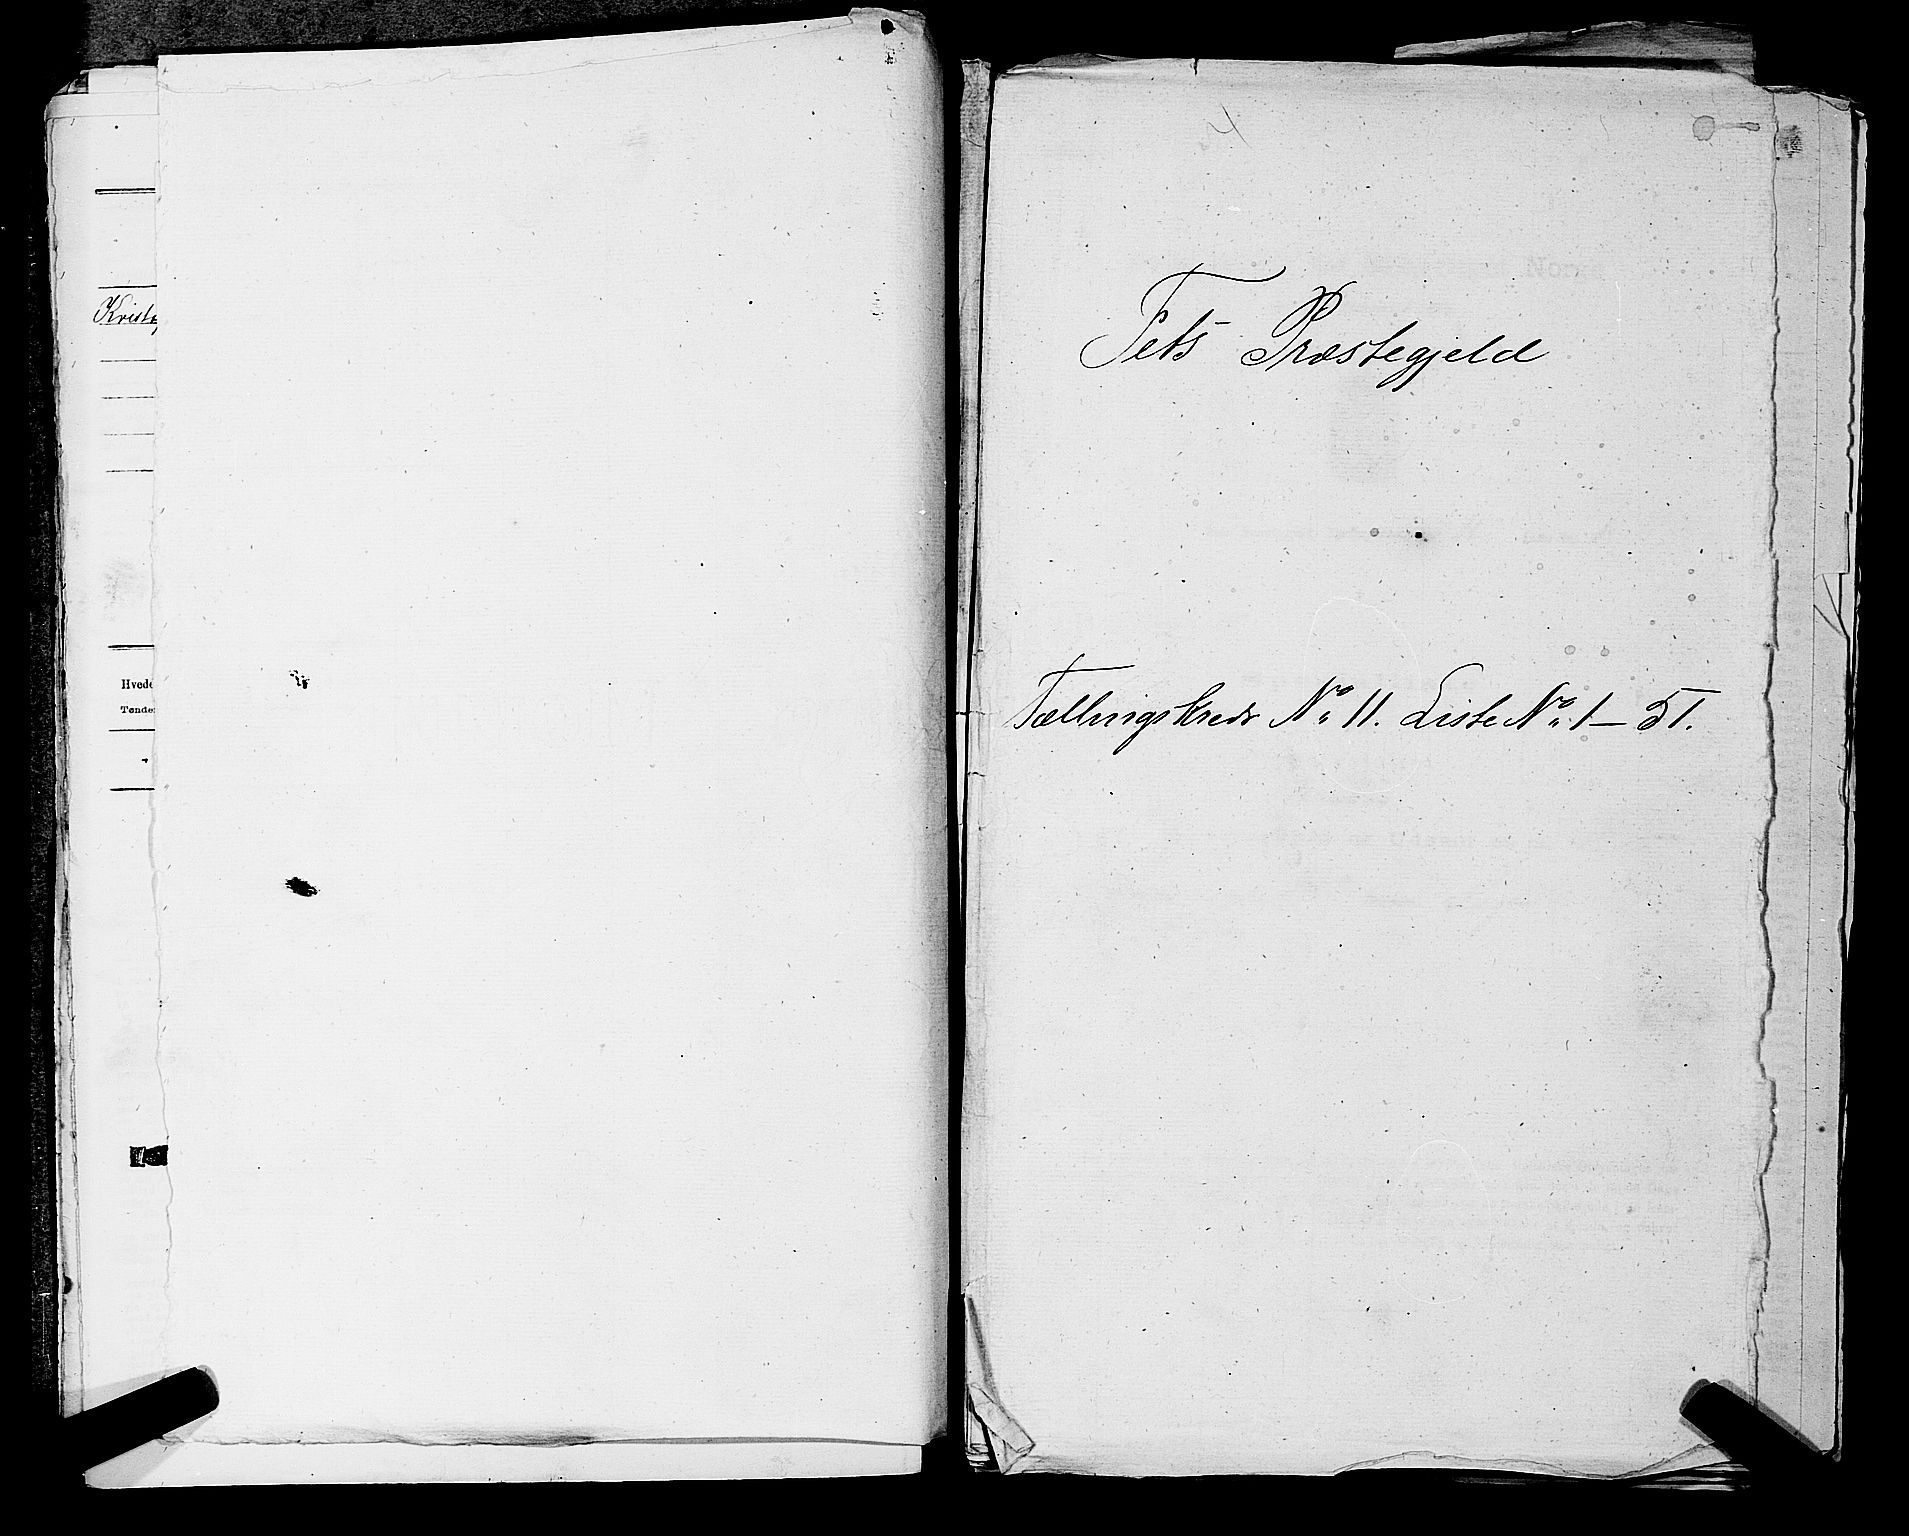 Hvede
Tønder
Fets Præstegjeld
Tællingskreds No 11. Liste No 1-51.